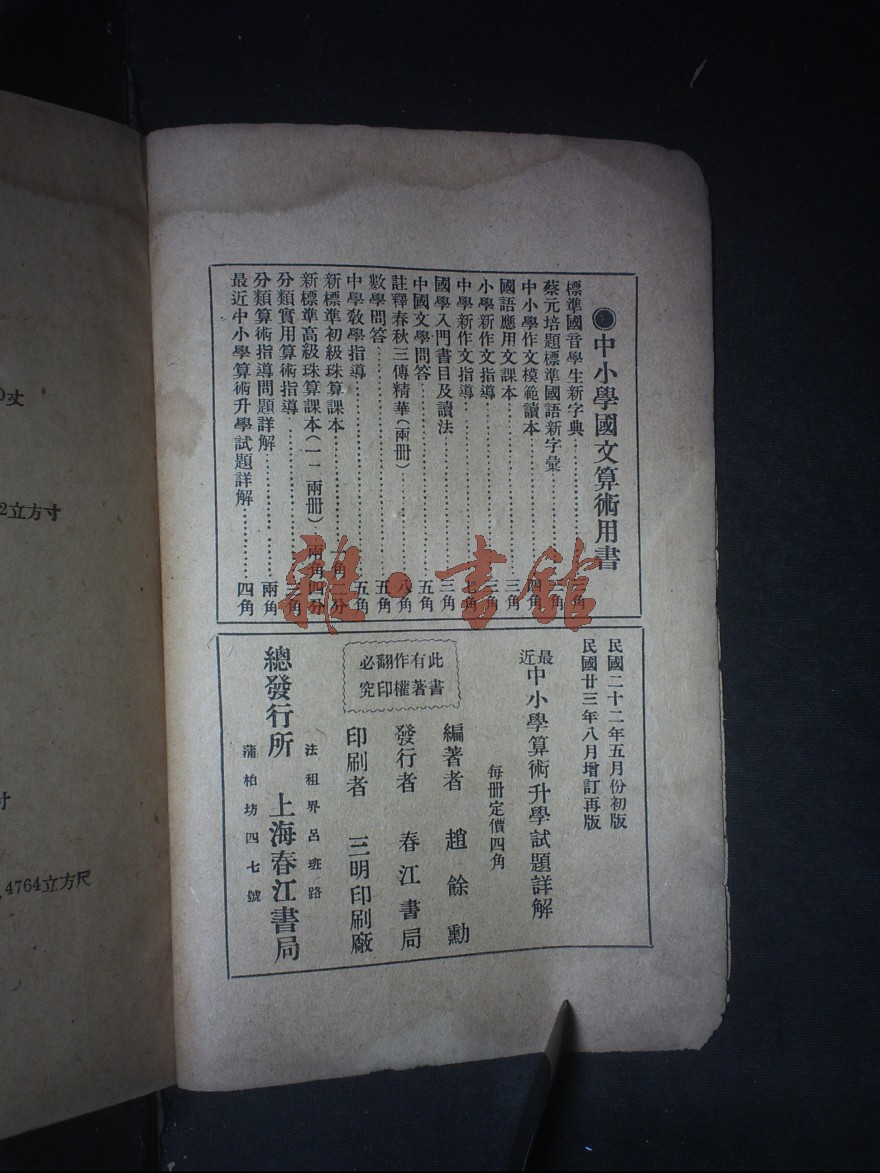 ●中小學國文算術用書
標準國音學生新字典………角
蔡元培題標準國語新字彙………角
中小學作文模範讀本………角
國語應用文課本………三角
小學新作文指導………三角
中學新作文指導………七角
國學入門書目及讀法………三角
中國文學問答………五角
註釋春秋三傳精華(兩册)………八角
數學問答………五角
中學教學指導………五角
新標準初級珠算課本………角二分
新標準高級珠算課本(一一兩册)…兩角四分
分類實用算術指導………三角
分類算術指導問題詳解………兩角
最近中小學算術升學試題詳解………四角
民國二十二年五月份初版
民國廿三年八月增訂再版
最近中小學算術升學試題詳解
每册定價四角
編著者 趙餘勳
發行者 春江書局
印刷者 三明印刷廠
此書有著作權翻印必究
總發行所 上海春江書局
法租界呂班路
蒲柏坊四七號
丈
2立方寸
寸
4764立方尺
雜·書館